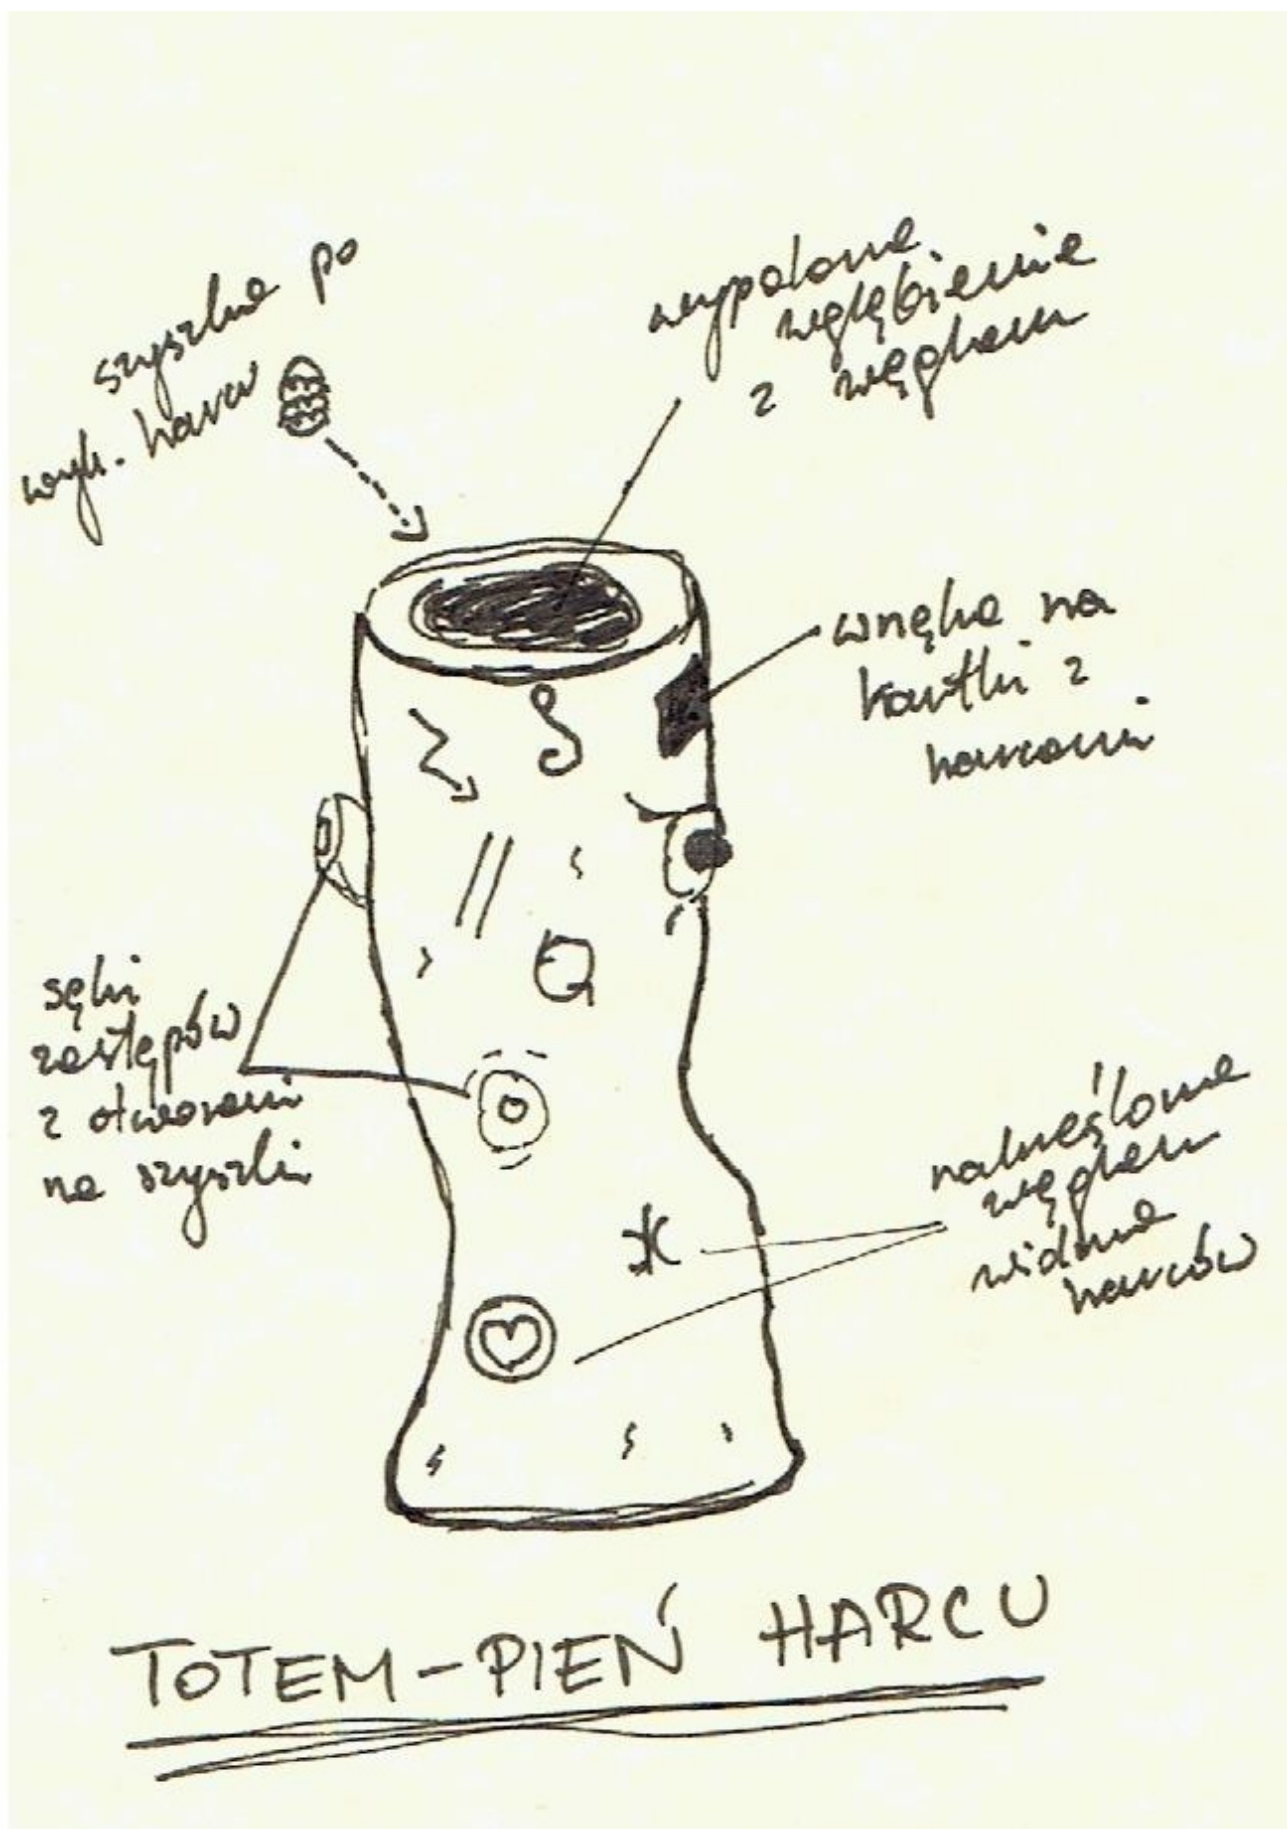 szyszka po
wyk. harcu
wypalone
wgłębienie
z węglem
wnęka na
kartki z
harcami
sęki
zastępów
z otworami
na szyszki
nakreślone
węglem
widma
harców
TOTEM-PIEŃ HARCU